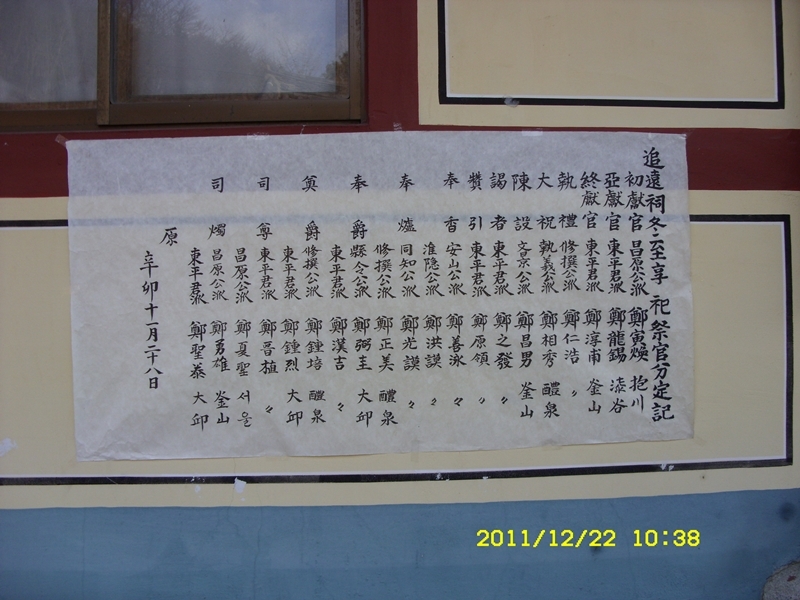 追遠祠冬至享祀祭官分定記
初獻官 昌原公派 鄭寅煥 抱川
亞獻官 東平君派 鄭龍錫 漆谷
終獻官 東平君派 鄭淳甫 釜山
執禮 修撰公派 鄭仁浩 〃
大祝 執義公派 鄭相秀 醴泉
陳設 京公派 鄭昌男 釜山
謁者 東平君派 鄭之發 〃
贊引 東平君派 鄭原領 〃
奉香 安山公派 鄭善泳 〃
淮隐公派 鄭洪謨 〃
奉爐 同知公派 鄭光謨 〃
修撰公派 鄭正美 醴泉
奉爵 縣令公派 鄭弼圭 大邱
東平君派 鄭漢吉 〃
奠爵 修撰公派 鄭鍾培 醴泉
東平君派 鄭鍾烈 大邱
司尊 東平君派 鄭晋植 〃
昌原公派 鄭夏聖 서울
司燭 昌原公派 鄭勇雄 釜山
東平君派 鄭聖泰 大邱
原
辛卯十一月二十八日
2011/12/22 10:38